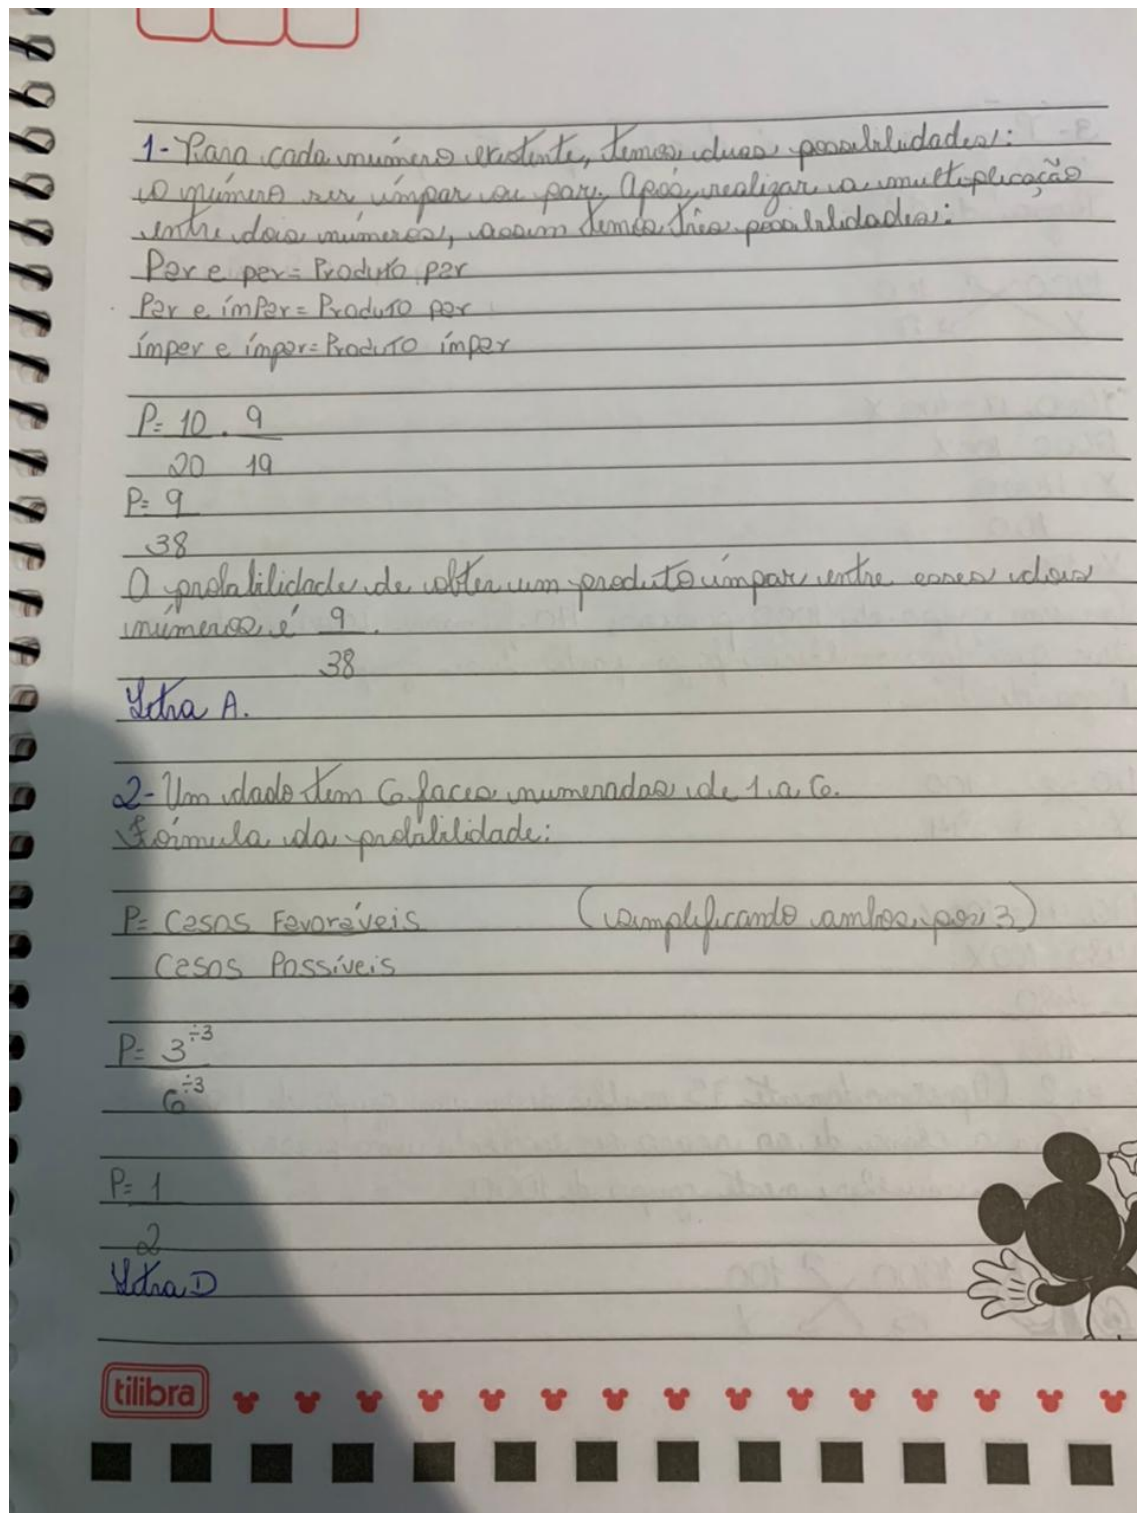 1- Para cada número existente, temos duas possibilidades:
o número ser ímpar ou par. Após realizar a multiplicação
entre dois números, assim temos três possibilidades:
Par e par = Produto par
Par e ímpar = Produto par
ímpar e ímpar = Produto ímpar
P= 10 . 9
20 19
P= 9
38
A probabilidade de obter um produto ímpar entre esses dois
números é 9 .
38
Letra A.
2- Um dado tem 6 faces numeradas de 1 a 6.
Fórmula da probabilidade:
P= Casos Favoráveis (simplificando ambos por 3)
Casos Possíveis
P= 3÷3
6÷3
P= 1
2
Letra D
tilibra